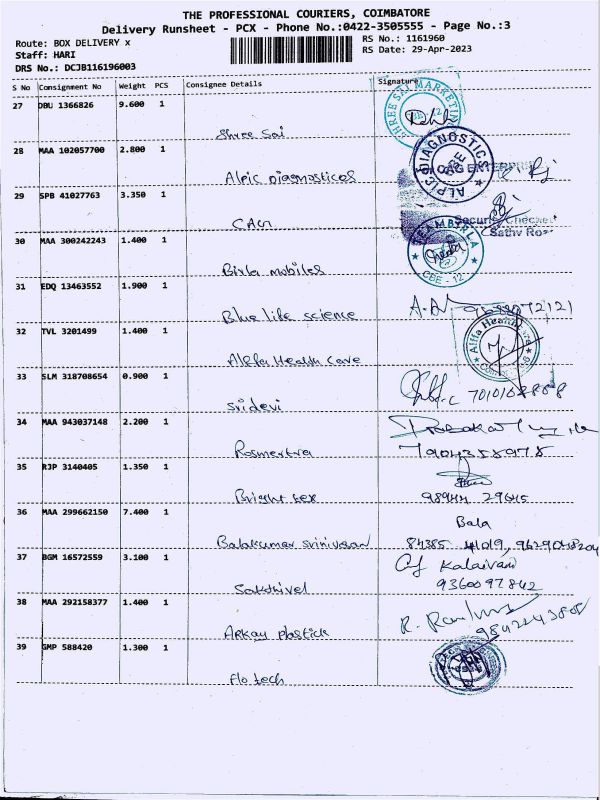 THE PROFESSIONAL COURIERS, COIMBATORE
Delivery Runsheet - PCX - Phone No.:0422-3505555 - Page No.:3
Route: BOX DELIVERY x RS No.: 1161960
Staff: HARI RS Date: 29-Apr-2023
DRS No.: DCJB116196003
S No Consignment No Weight PCS Consignee Details Signature
27 DBU 1366826 9.600 1
Shree Sai
SHREE SAI MARKETING
28 MAA 102057700 2.800 1
Alpic Diagnosticos
ALPIC DIAGNOSTICS
CBE
29 SPB 41027763 3.350 1
CAG
30 MAA 300242243 1.400 1
Birla mobiles
CBE - 12
31 EDQ 13463552 1.900 1
Blue life science
32 TVL 3201499 1.400 1
Alefa Health Care
33 SLM 318708654 0.900 1
sridevi
34 MAA 943037148 2.200 1
Rosmertra 7904358978
35 RJP 3140405 1.350 1
Bright tex 98944 29645
36 MAA 299662150 7.400 1
Bala
Balakumar srinivasan 84385 41019, 9629048204
37 BGM 16572559 3.100 1
Kalaivani
Sakthivel 9360097842
38 MAA 292158377 1.400 1
Arkay plastick
39 GMP 588420 1.300 1
Flo tech